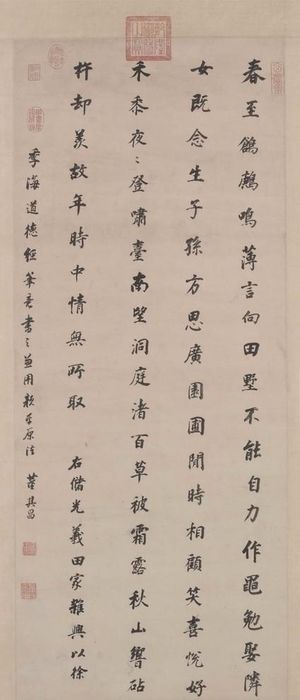 春至鶬鶊鳴薄言向田墅不能自力作黽勉娶隣
女既念生子孫方思廣園圃閒時相顧笑喜悅好
禾黍夜〻登嘯臺南望洞庭渚百草被霜露秋山響砧
杵却羨故年時中情無所取 右儲光羲田家雜興以徐
季海道德經筆意書之兼用顏平原法 董其昌